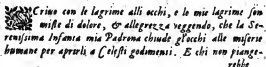 SCriuo con le lagrime alli occhi, e le mie lagrime son
miste di dolore, & allegrezza veggendo, che la Se-
renissima Infanta mia Padrona chiude gl'occhi alle miserie
humane per aprirli a Celesti godimenti. E chi non piange-
rebbe